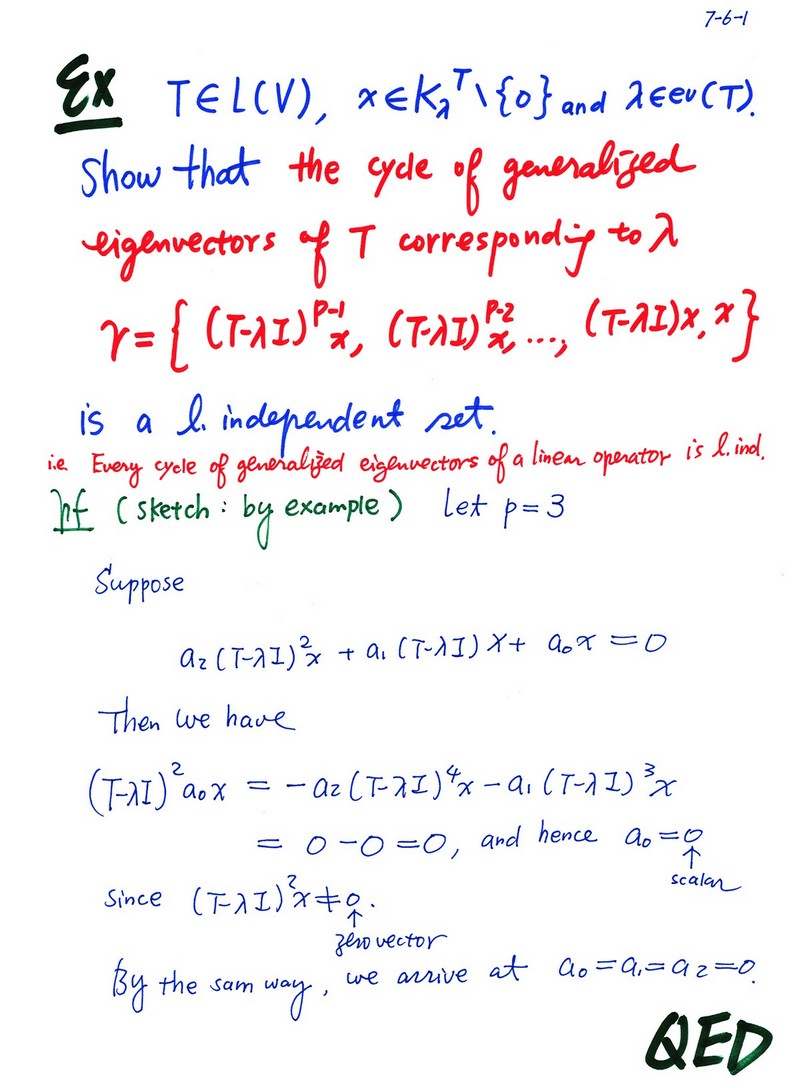 7-6-1
Ex T∈L(V), x∈K_λ^T \ {0} and λ∈ev(T).
Show that the cycle of generalized
eigenvectors of T corresponding to λ
γ = { (T-λI)^{p-1}x, (T-λI)^{p-2}x, ..., (T-λI)x, x }
is a l. independent set.
i.e. Every cycle of generalized eigenvectors of a linear operator is l. ind.
pf (sketch: by example) Let p=3
Suppose
a₂(T-λI)²x + a₁(T-λI)x + a₀x = 0
Then we have
(T-λI)²a₀x = -a₂(T-λI)⁴x - a₁(T-λI)³x
= 0 - 0 = 0, and hence a₀ = 0
↑
scalar
Since (T-λI)²x ≠ 0.
↑
zero vector
By the sam way, we arrive at a₀ = a₁ = a₂ = 0.
QED